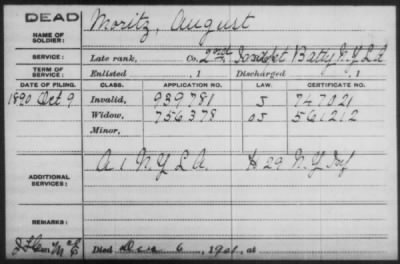 DEAD
NAME OF SOLDIER: Moritz, August
SERVICE: Late rank, Co. 2nd Indpt Batty N.Y. L A
TERM OF SERVICE: Enlisted , 1 Discharged , 1
DATE OF FILING. CLASS. APPLICATION NO. LAW. CERTIFICATE NO.
1890 Oct 9 Invalid, 939781 J 747021
Widow, 756378 OS 561212
Minor,
ADDITIONAL SERVICES: A 1 N.Y L A. K 29 N.Y Inf
REMARKS:
Died Dec 6, 1901, at